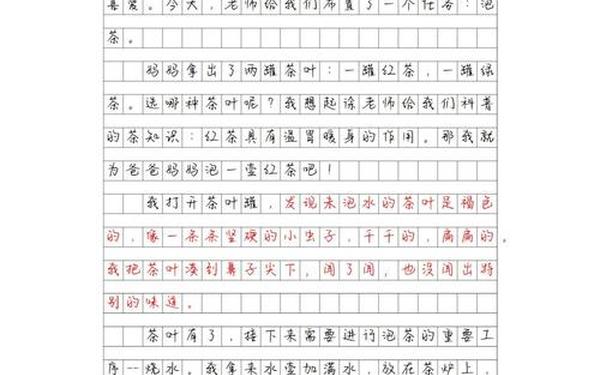 喜爱。今天，老师给我们布置了一个任务：泡
茶。
妈妈拿出了两罐茶叶：一罐红茶，一罐绿
茶。选哪种茶叶呢？我想起徐老师给我们科普
的茶知识：红茶具有温胃暖身的作用。那我就
为爸爸妈妈泡一壶红茶吧！
我打开茶叶罐，发现未泡水的茶叶是褐色
的，像一条条坚硬的小虫子，干干的，扁扁的。
我把茶叶凑到鼻子尖下，闻了闻，也没闻出特
别的味道。
茶叶有了，接下来需要进行泡茶的重要工
序--烧水。我拿来水壶加满水，放在茶炉上，